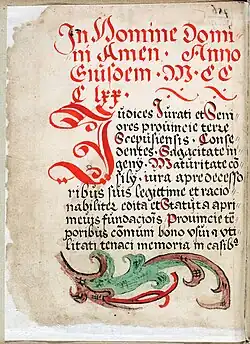 In Nomine Domi
ni Amen. Anno
Eiusdem. M. CC
C lxx.
Iudices Iurati et Seni
ores prouincie terre
Scepusiensis. Conse
dentes. Sagacitate in
geny. Maturitate cō
sily. iura apredecesso
ribus suis legittime et racio
nabiliter edita et Statuta apri
meuis fundaciōis Prouincie tē
poribus cōmuni bono vsui et vti
litati tenaci memoria in casibꝫ